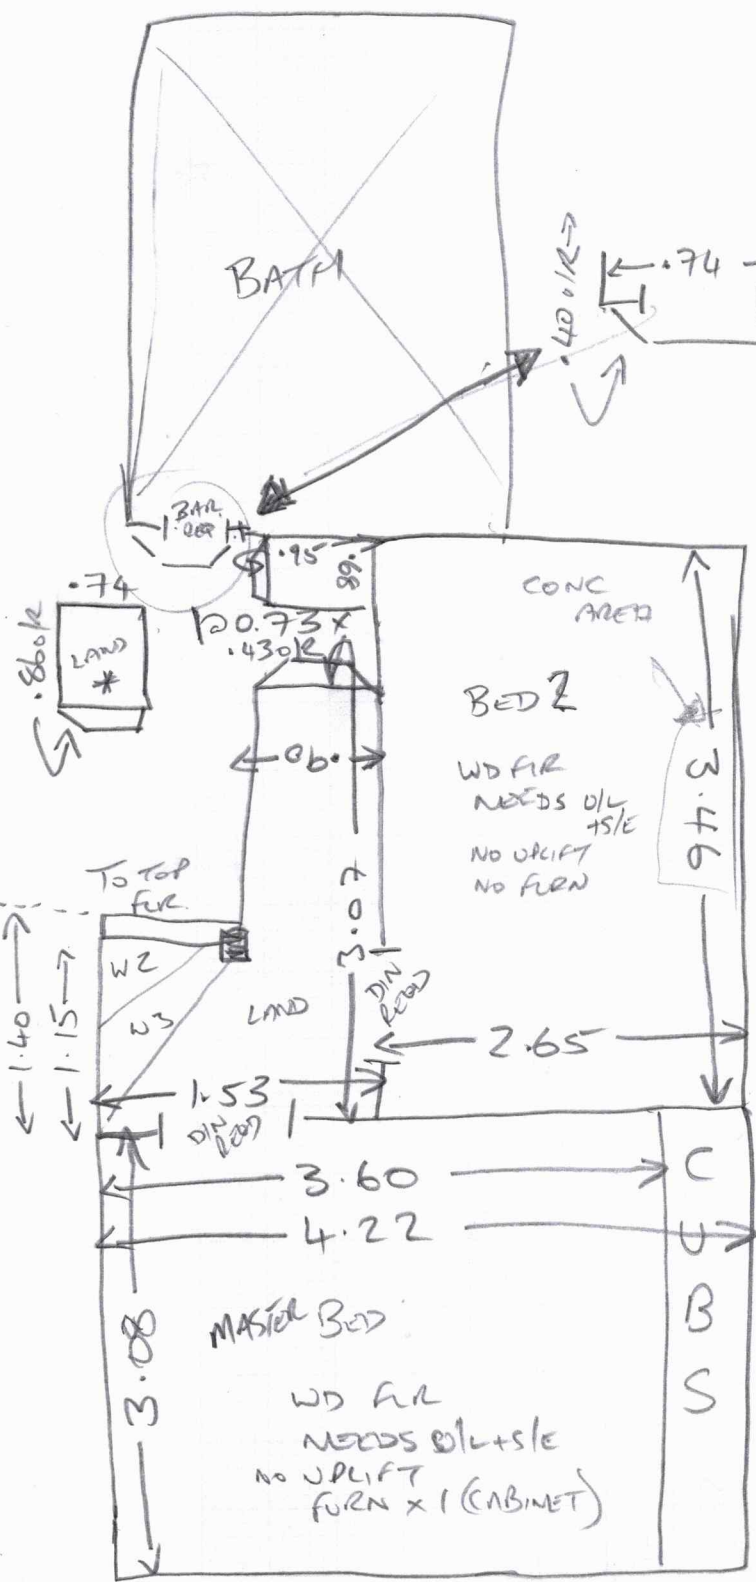 BATH
.40 o/R
.74
BAR
REQ
.74
.860/R
LAND
*
.95
.68
@0.73 x
.430 R
.90
CONC
AREA
BED 2
WD FLR
NEEDS U/L
+S/E
NO UPLIFT
NO FURN
3.46
TO TOP
FLR
W2
W3
LAND
3.07
DIN
REQD
1.40
1.15
1.53
DIN
REQD
2.65
3.60
4.22
C
U
B
S
3.08
MASTER BED
WD FLR
NEEDS U/L+S/E
NO UPLIFT
FURN x 1 (CABINET)